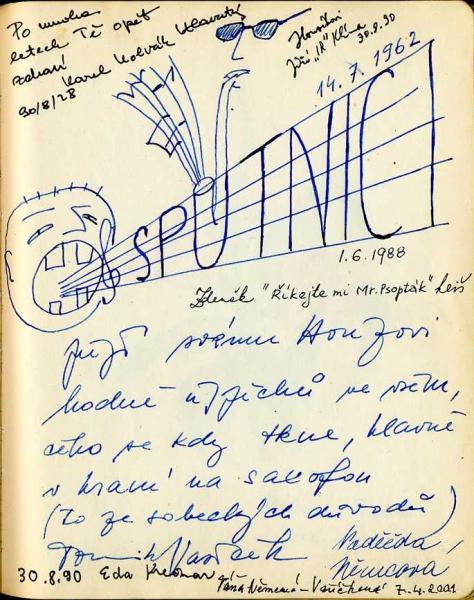 Po mnoha
letech Tě opět
zdraví
Karel
30/8/28
Honzíkovi
Jiří "
30.8.90
14.7.1962
SPUTNICI
1.6.1988
Zdeněk "Říkejte mi Mr. Psopták"
svému Honzovi
hodně úspěchů ve všem,
čeho se kdy tkne, hlavně
v hraní na saxofon
(to ze sobeckých důvodů)
Naděžda
Němcova
30.8.90 Eda
Táňa Němcová - 7.4.2001